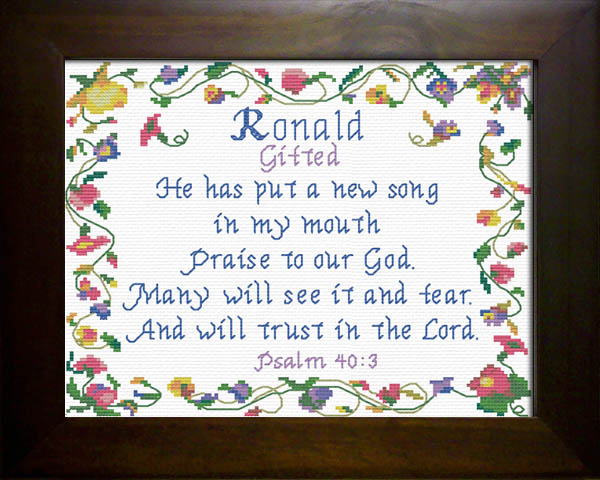 Ronald
Gifted
He has put a new song
in my mouth
Praise to our God.
Many will see it and tear.
And will trust in the Lord.
Psalm 40:3